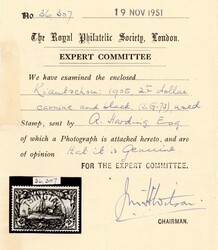 No 36,307
19 NOV 1951
The Royal Philatelic Society, London.
EXPERT COMMITTEE
We have examined the enclosed
Kiautschou: 1905, 2½ dollar
carmine and black (S.G. 43) used
Stamp, sent by A. Harding Esq
of which a Photograph is attached hereto, and are
of opinion that it is Genuine
FOR THE EXPERT COMMITTEE.
36,307
CHAIRMAN.